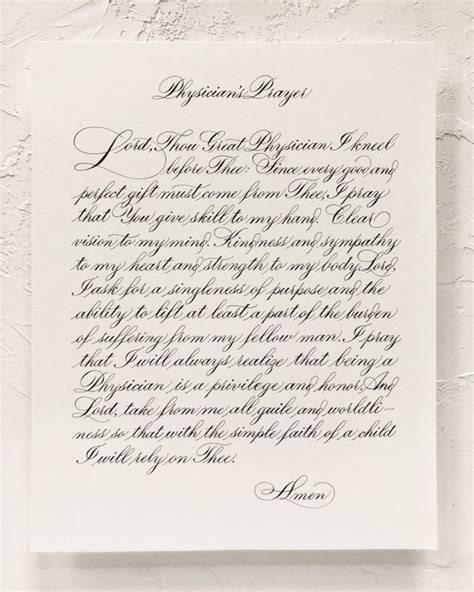 Physician's Prayer
Lord, Thou Great Physician I kneel
before Thee: Since every good and
perfect gift must come from Thee, I pray
that You give skill to my hand. Clear
vision to my mind. Kindness and sympathy
to my heart and strength to my body. Lord,
I ask for a singleness of purpose and the
ability to lift at least a part of the burden
of suffering from my fellow man. I pray
that I will always realize that being a
Physician is a privilege and honor. And
Lord, take from me all guile and worldli-
ness so that with the simple faith of a child
I will rely on Thee.
Amen